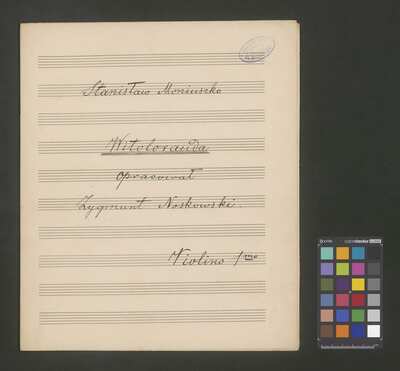 Stanisław Moniuszko
Witoloranda
opracował
Zygmunt Noskowski.
Violino 1mo